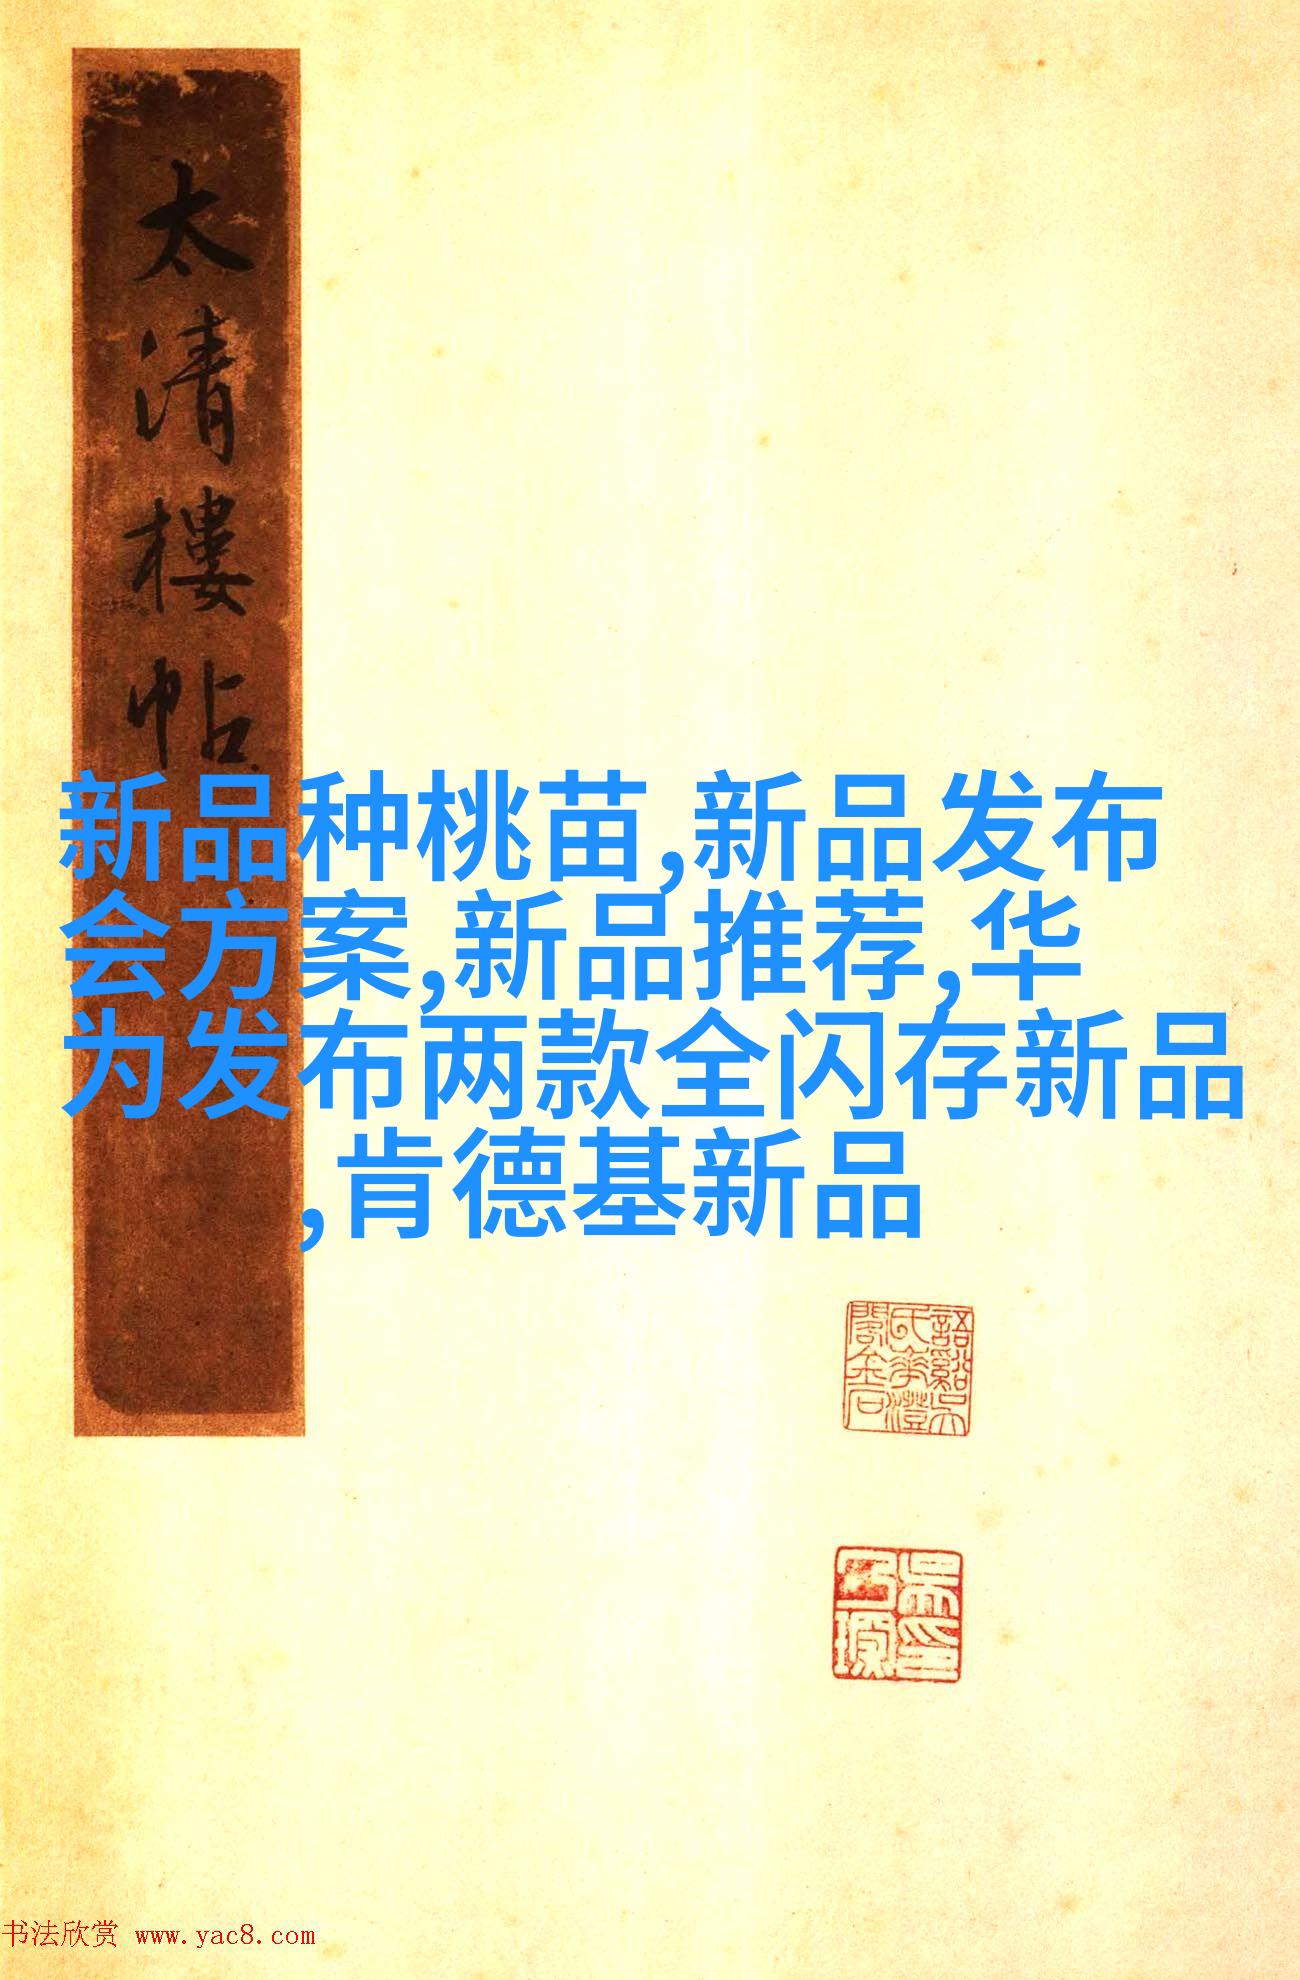 太清樓帖
新品种桃苗,新品发布
会方案,新品推荐,华
为发布两款全闪存新品
,肯德基新品
书法欣赏 www.yac8.com